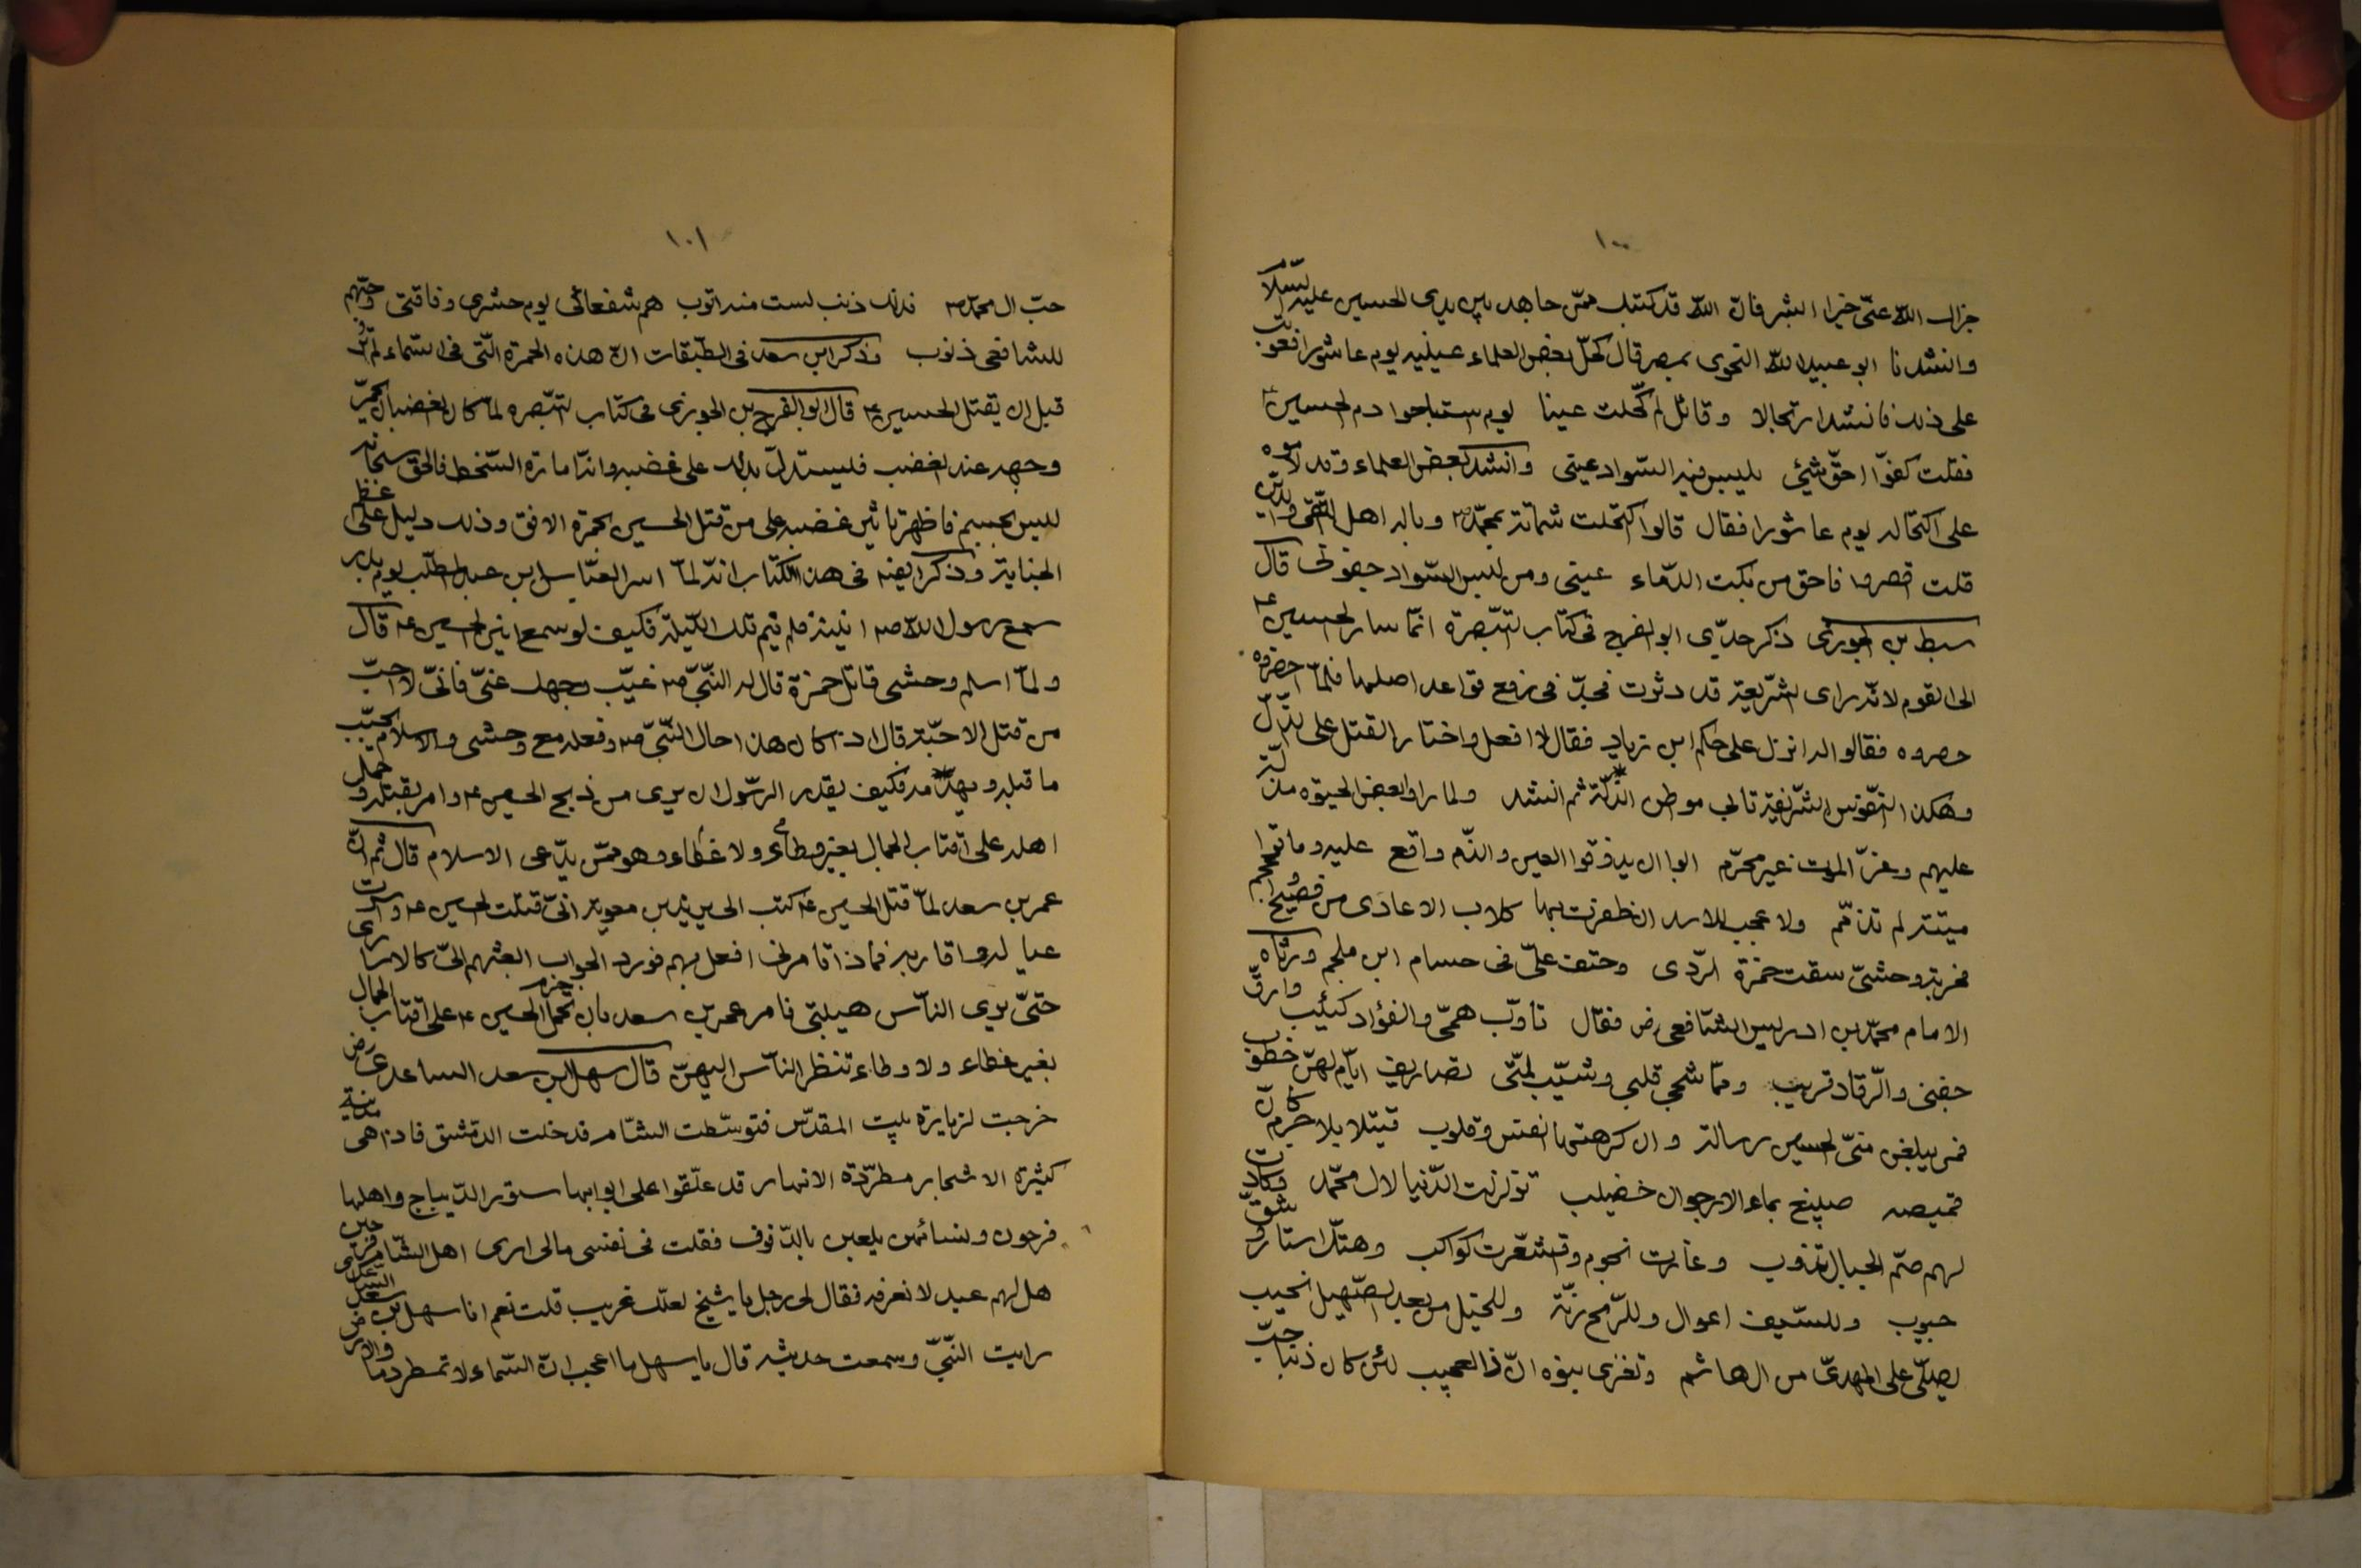 ١٠٠
جزاك الله عنّى خيرا ابشر فانّ الله قد كتبك ممّن جاهد بين يدى الحسين عليه السّلام
وانشدنا ابو عبيد الله النحوى بمصر قال كحّل بعض العلماء عينيه يوم عاشورا فعوتب
على ذلك فانشد ارتجالا وقائل لم كحّلت عينا يوم استباحوا دم الحسين ع
فقلت كفوّا احقّ شيئى يلبس فيه السّواد عينى وانشد بعض العلماء وقد لاموه
على اكتحاله يوم عاشورا فقال قالوا اكتحلت شماتة بمحمّد ص وباله اهل التّقى والدّين
قلت اقصروا فاحق من بكت الدّماء عينى ومن لبس السّواد جفونى قال
سبط بن الجوزى ذكر جدّى ابو الفرج فى كتاب التبّصرة انمّا سار الحسين ع
الى القوم لانّه راى الشّريعة قد دثرت فجدّ فى رفع قواعد اصلها فلمّا حضروه
حصروه فقالوا له انزل على حكم ابن زياد فقال لا افعل واختار القتل على الذّلّ
وهكذا النّفوس الشّريفة تابى موطن الذّلّة ثم انشد ولما راوا بعض الحيوة مذلّة
عليهم وعزّ الموت غير محرّم ابوا ان يذوقوا العيش والذّم واقع عليه وماتوا
ميتة لم تذمّم ولا عجب للاسد ان ظفرت بها كلاب الاعادى من فصيح واعجم
فحربة وحشىّ سقت حمزة الرّدى وحتف علىّ فى حسام ابن ملجم ورثاه
الامام محمّد بن ادريس الشّافعى رض فقال تاوّب همّى والفؤاد كئيب وارّق
جفنى والرّقاد قريب وممّا شجى قلبى وشيّب لمّتى تصاريف ايّام لهنّ خطوب
فمن يبلغن منّى الحسين رسالة وان كرهتها انفس وقلوب قتيلا بلا جرم كانّ
قميصه صبيغ بماء الارجوان خضيب تزلزلت الدّنيا لال محمّد وكادت
لهم صمّ الجبال تذوب وغارت نجوم واقشعّرت كواكب وهتّك استار وشقّ
جيوب وللسّيف اعوال وللرّمح رنّة وللخيل من بعد الصّهيل نحيب
يصلّى على المهدىّ من ال هاشم وتغزى بنوه انّ ذا لعجيب لئن كان ذنبا حبّ
١٠١
حبّ ال محمّد ص فذلك ذنب لست منه اتوب هم شفعائى يوم حشرى وفاقتى وحبّهم
للشافعى ذنوب وذكر ابن سعد فى الطّبقات انّ هذه الحمرة الّتى فى السّماء لم تر
قبل ان يقتل الحسين ع قال ابو الفرج بن الجوزى فى كتاب التبّصره لمّا كان الغضبان يحمرّ
وجهه عند الغضب فليستدلّ بذلك على غضبه وانّه امارة السّخط فالحقّ سبحانه
ليس بجسم فاظهر تاثير غضبه على من قتل الحسين بحمرة الافق وذلك دليل على عظم
الجناية وذكر ايضا فى هذا الكتاب انّه لمّا اسر العبّاس بن عبد المطّلب يوم بدر
سمع رسول الله ص انينه فلم ينم تلك اللّيلة فكيف لو سمع انين الحسين ع قال
ولمّا اسلم وحشى قاتل حمزة قال له النّبىّ ص غيّب وجهك عنّى فانّى لا احبّ
من قتل الاحبّة قال اذا كان هذا حال النّبىّ ص وفعله مع وحشى والاسلام يجبّ
ما قبله ويهدّمه فكيف يقدر الرّسول ان يرى من ذبح الحسين ع وامر بقتله وحمل
اهله على اقتاب الجمال بغير وطاء ولا غطاء وهو ممّن يدّعى الاسلام قال ثم انّ
عمر بن سعد لمّا قتل الحسين ع كتب الى يزيد بن معوية انّى قتلت الحسين ع واسرت
عياله واقاربه فماذا تامرنى افعل بهم فورد الجواب ابعثهم الىّ كالاسارى
حتىّ يرى النّاس هيبتى فامر عمر بن سعد بان تحمل حرم الحسين ع على اقتاب الجمال
بغير غطاء ولا وطاء تنظر النّاس اليهنّ قال سهل ابن سعد الساعدى رض
خرجت لزيارة بيت المقدّس فتوسّطت الشّام فدخلت الدمشق فاذا هى مدينة
كثيرة الاشجار مطّردة الانهار قد علّقوا على ابوابها ستور الدّيباج واهلها
فرحون ونسائهن يلعبن بالدّفوف فقلت فى نفسى مالى ارى اهل الشّام فرحين
هل لهم عيد لا نعرفه فقال لى رجل يا شيخ لعلّك غريب قلت نعم انا سهل بن سعد
رايت النّبىّ وسمعت حديثه قال يا سهل ما اعجب انّ السّماء لا تمطر دما والارض